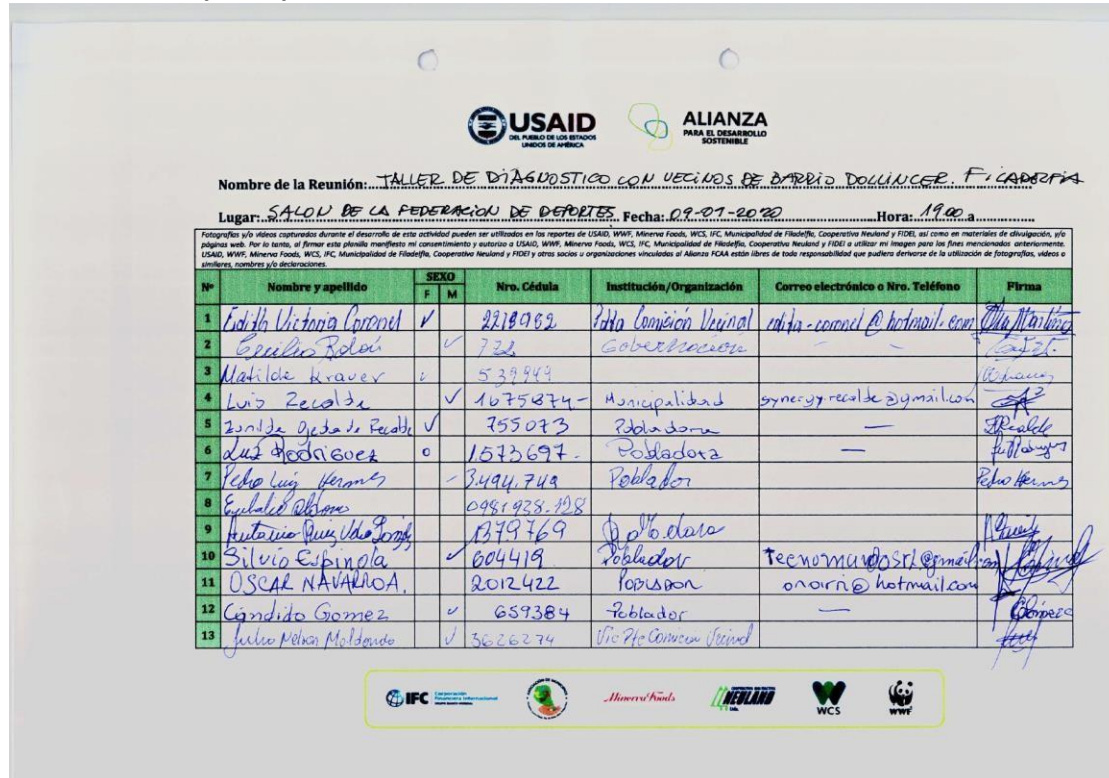 USAID
DEL PUEBLO DE LOS ESTADOS
UNIDOS DE AMÉRICA
ALIANZA
PARA EL DESARROLLO
SOSTENIBLE
Nombre de la Reunión: TALLER DE DIAGNOSTICO CON VECINOS DE BARRIO DOLLINCER. FILADELFIA
Lugar: SALON DE LA FEDERACION DE DEPORTES Fecha: 09-01-2020 Hora: 19.00 a
Fotografías y/o videos capturados durante el desarrollo de esta actividad pueden ser utilizados en los reportes de USAID, WWF, Minerva Foods, WCS, IFC, Municipalidad de Filadelfia, Cooperativa Neuland y FIDEI, así como en materiales de divulgación, y/o
páginas web. Por lo tanto, al firmar esta planilla manifiesto mi consentimiento y autorizo a USAID, WWF, Minerva Foods, WCS, IFC, Municipalidad de Filadelfia, Cooperativa Neuland y FIDEI a utilizar mi imagen para los fines mencionados anteriormente.
USAID, WWF, Minerva Foods, WCS, IFC, Municipalidad de Filadelfia, Cooperativa Neuland y FIDEI y otros socios u organizaciones vinculadas al Alianza FCAA están libres de toda responsabilidad que pudiera derivarse de la utilización de fotografías, videos o
similares, nombres y/o declaraciones.
Nº Nombre y apellido SEXO F M Nro. Cédula Institución/Organización Correo electrónico o Nro. Teléfono Firma
1 Edith Victoria Coronel 2219982 Comisión Vecinal edita-coronel@hotmail.com
2 722 Gobernación
3 Matilde Kraver 539949
4 Luis Recalde 1675874- Municipalidad synergy.recalde@gmail.com
5 Zunilda Ojeda de Recalde 755073 Pobladora — Recalde
6 Luz Rodriguez 1.573697. Pobladora —
7 Pedro Luis Hermes 3.494.749 Poblador Pedro Hermes
8 0981938.128
9 Antonio Ruiz 1379769
10 Silvio Espinola 604419 Poblador tecnomundosrl@gmail.com
11 OSCAR NAVARROA. 2012422 POBLADOR onoirri@hotmail.com
12 Candido Gomez 659384 Poblador — Gomez
13 Julio Nelson Maldonado 3626274 Vic Pte Comision Vecinal
IFC Corporación Financiera Internacional
Minerva Foods
NEULAND
WCS
WWF